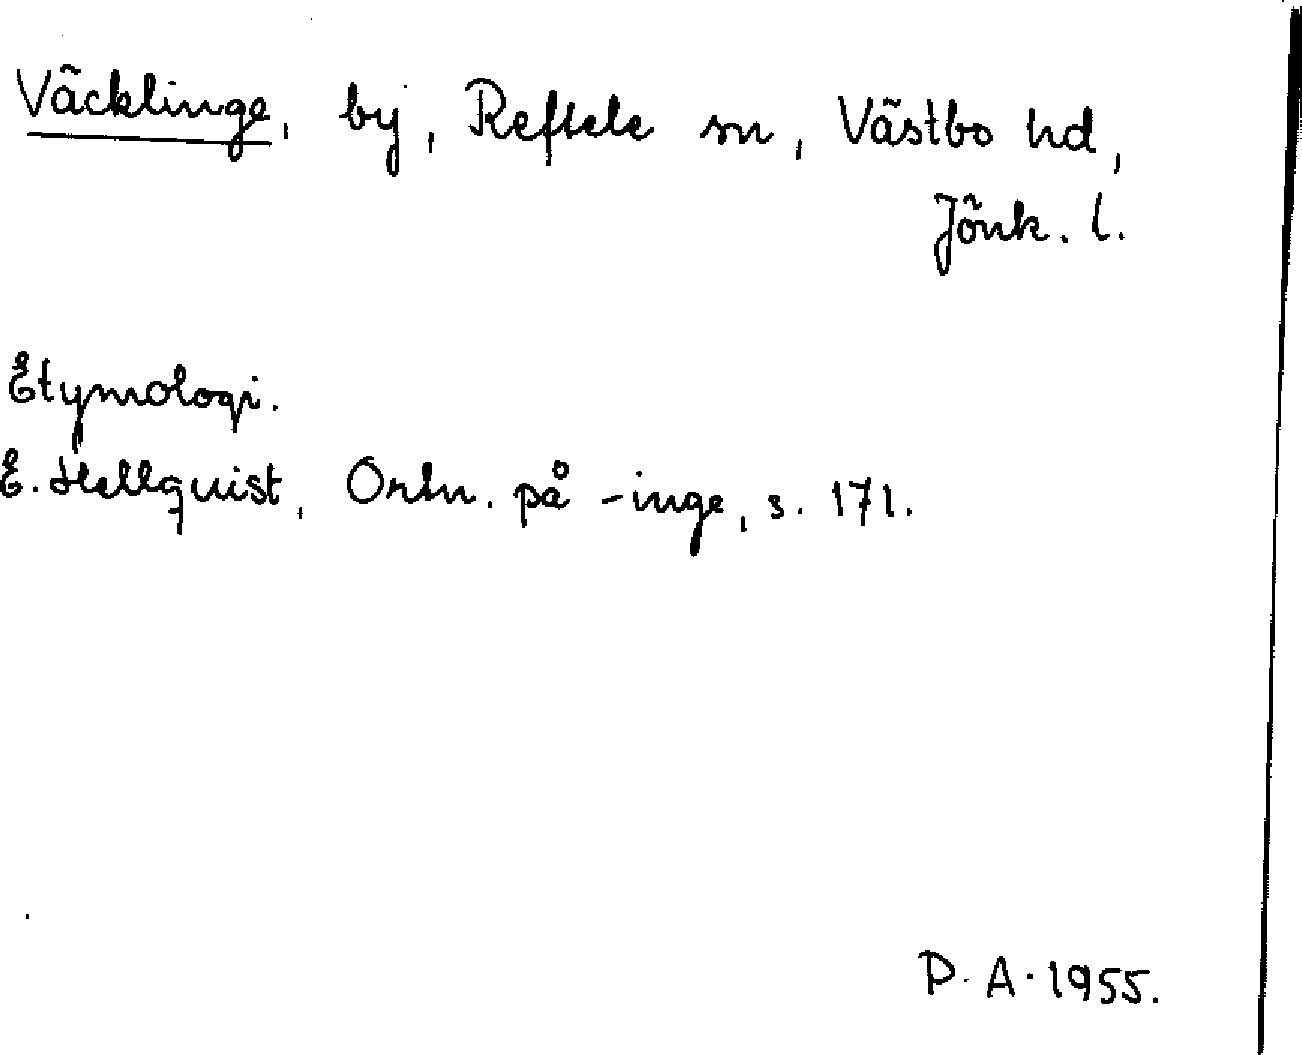 Väcklinge, by, Reftele sn, Västbo hd,
Jönk. l.
Etymologi.
E. Hellquist, Ortn. på -inge, s. 171.
P. A. 1955.